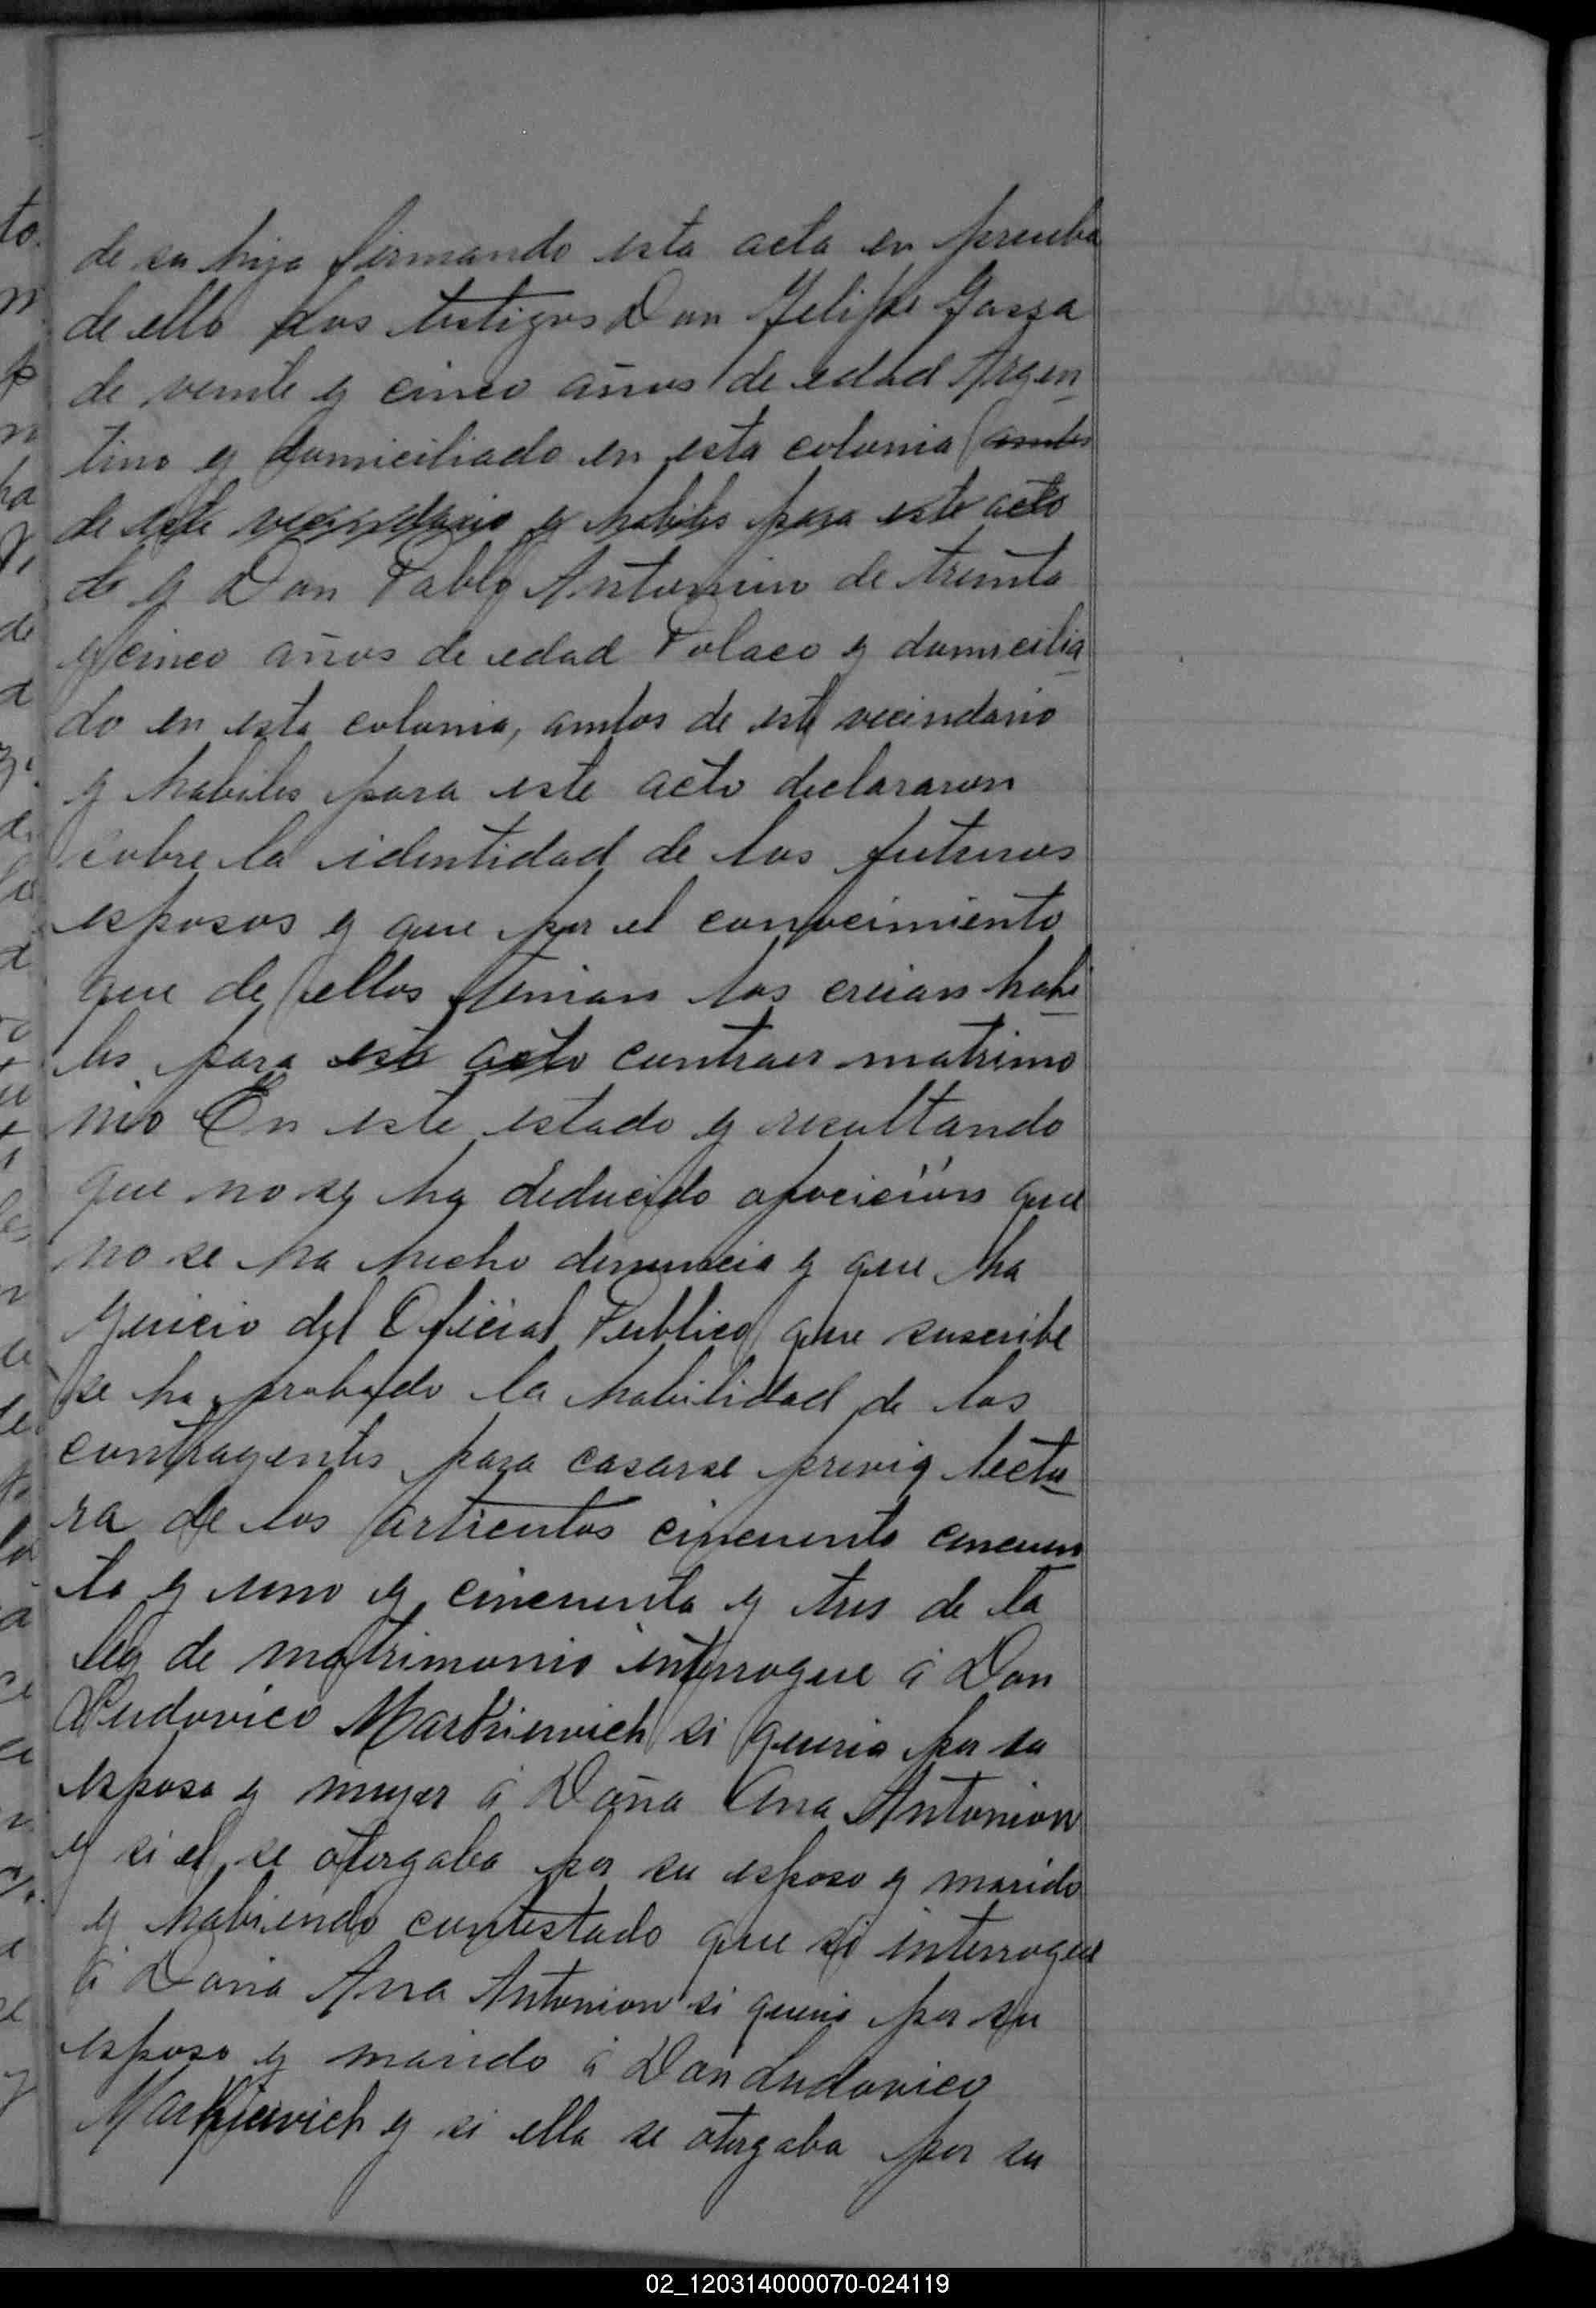 de su hija firmando esta acta en prueba
de ello los testigos Don Felipe
de veinte y cinco años de edad Argen
tino y domiciliado en esta colonia ambos
de este vecindario y habiles para este acto
do y Don Pablo Antonion de treinta
y cinco años de edad Polaco y domicilia
do en esta colonia, ambos de este vecindario
y habiles para este acto declararon
cobre la identidad de los futuros
esposos y que por el conocimiento
que de ellos tenian los creian habi
les para este acto contraer matrimo
nio En este estado y resultando
que no se ha deducido oposición que
no se ha hecho denuncia y que ha
juicio del Oficial Publico que suscribe
se ha probado la habilidad de los
contrayentes para casarse previa lectu
ra de los articulos cincuenta cincuen
ta y uno y cincuenta y tres de la
ley de matrimonio interrogue á Don
Ludovico Markievich si queria por su
esposa y mujer á Doña Ana Antonion
y si el se otorgaba por su esposo y marido
y habiendo contestado que si interrogue
á Doña Ana Antonion si queria por su
esposo y marido á Don Ludovico
Markievich y si ella se otorgaba por su
02_120314000070-024119